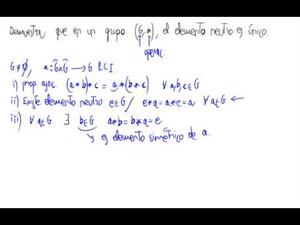 Demostrar que en un grupo (G,*), el elemento neutro es único.
operac.
G≠∅, *: G×G → G l.c.i.
i) prop. asoc. (a*b)*c = a*(b*c) ∀a,b,c∈G
ii) Existe elemento neutro e∈G / e*a=a*e=a ∀a∈G ←
iii) ∀a∈G ∃ b∈G a*b=b*a=e
→ es elemento simétrico de a.